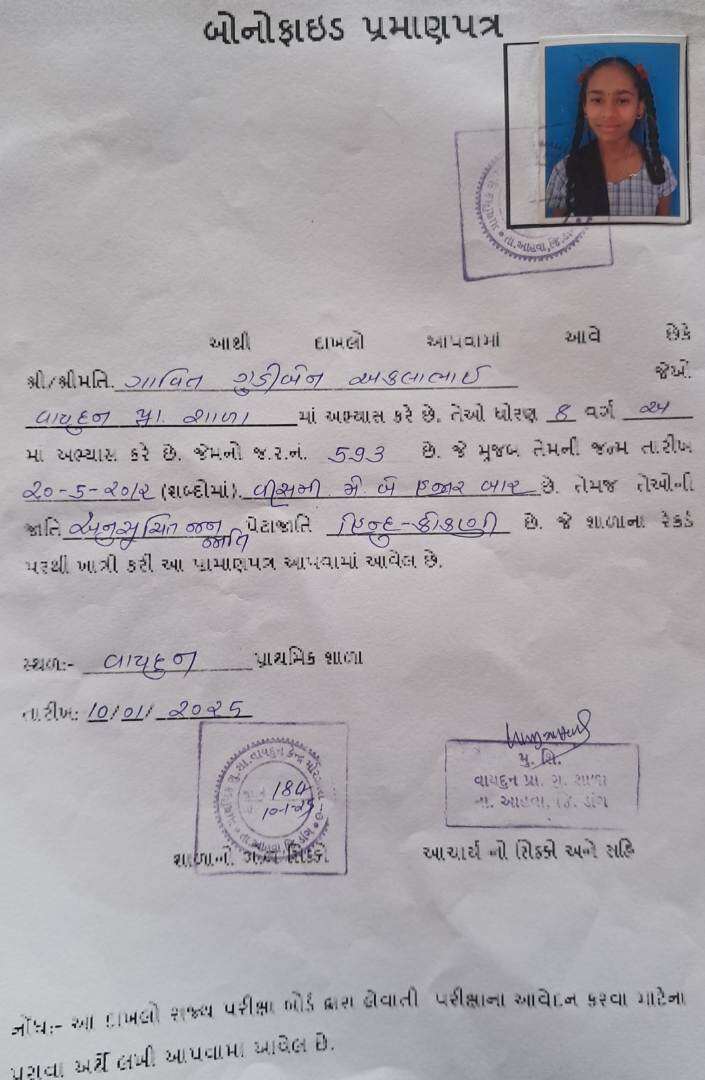 બોનોફાઇડ પ્રમાણપત્ર
તા.આહવા, જિ.ડાંગ
આથી દાખલો આપવામાં આવે છેકે
શ્રી/શ્રીમતિ. ગાવિત ગુડીબેન જેઓ
વાયદુન પ્રા. શાળા માં અભ્યાસ કરે છે. તેઓ ધોરણ 8 વર્ગ
માં અભ્યાસ કરે છે. જેમનો જ.ર.નં. 593 છે. જે મુજબ તેમની જન્મ તારીખ
૨૦-5-૨૦1૨ (શબ્દોમાં). વીસમી મે બે હજાર બાર છે. તેમજ તેઓની
જાતિ અનુસુચિત જન જાતિ પેટાજાતિ હિન્દુ-કોકણી છે. જે શાળાના રેકર્ડ
પરથી ખાત્રી કરી આ પ્રામાણપત્ર આપવામાં આવેલ છે.
સ્થળ:- વાયદુન પ્રાથમિક શાળા
તારીખ: 10/01/ 2025
184
10-1-25
મુ. શિ.
વાયદુન પ્રા. શાળા
તા. આહવા, જિ. ડાંગ
શાળાનો ગોળ સિક્કો.
આચાર્ય નો સિક્કો અને સહિ
નોંધ:- આ દાખલો રાજ્ય પરીક્ષા બોર્ડ દ્વારા લેવાતી પરીક્ષાના આવેદન કરવા માટેના
પુરાવા અર્થે લખી આપવામાં આવેલ છે.